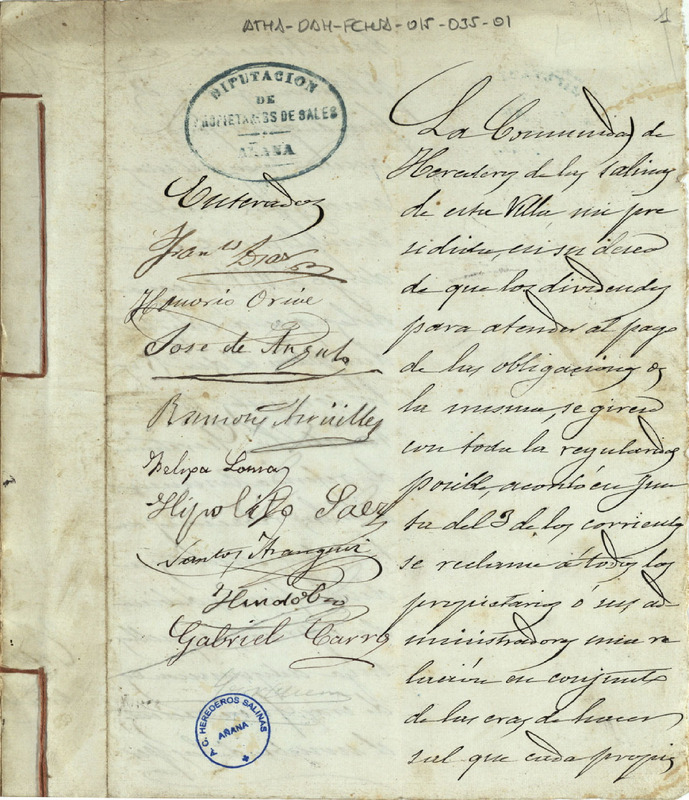 ATHA-DAH-FCHSA-015-035-01
1
DIPUTACION
DE
PROPIETARIOS DE SALES
AÑANA
Enterados
Honorio Orive
José de Angulo
Ramon Argüelles
Felipa Loma
Hipolito Saez
Santos Aranguiz
Gabriel Carro
A.C. HEREDEROS SALINAS
AÑANA
La Comunidad de
Herederos de las salinas
de esta Villa, mi pre
sidida, en su deseo
de que los dividendos
para atender al pago
de las obligaciones de
la misma, se giren
con toda la regularidad
posible, acordó en jun
ta del 3 de los corrientes
se reclame á todos los
propietarios ó sus ad
ministradores una re
lación en conjunto
de las eras de hacer
sal que cada propie